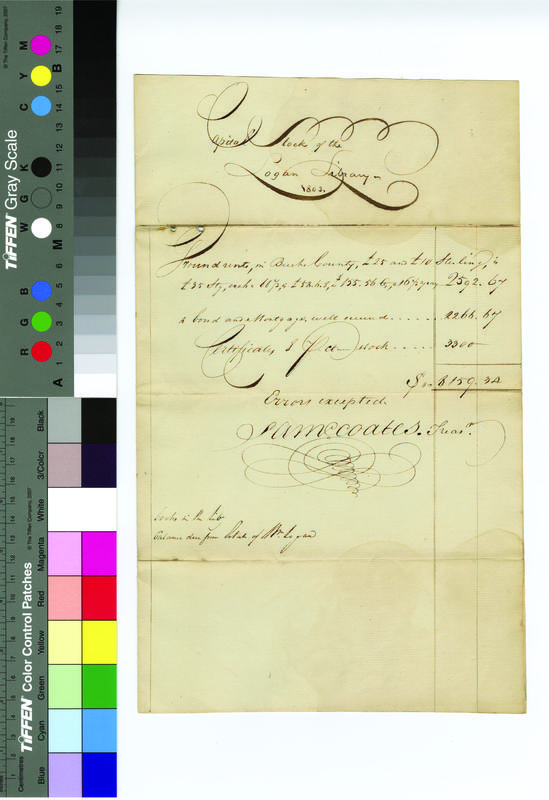 Capital Stock of the
Logan Library
1803.
Groundrents, in Bucks County, £25 and £10 Sterling, is
£35 Stg, each 2592.67
a bond and Mortgage, well secured 2266.67
Certificates 8 Stock 3300
$ 8159.34
Errors excepted
Sam Coates. Treasr.
books in the
balance due from Estate of Wm Logan
TIFFEN Gray Scale
© The Tiffen Company, 2007
R G B W G K C Y M
A 1 2 3 4 5 6 M 8 9 10 11 12 13 14 15 B 17 18 19
TIFFEN Color Control Patches
© The Tiffen Company, 2007
Centimetres
Blue Cyan Green Yellow Red Magenta White 3/Color Black